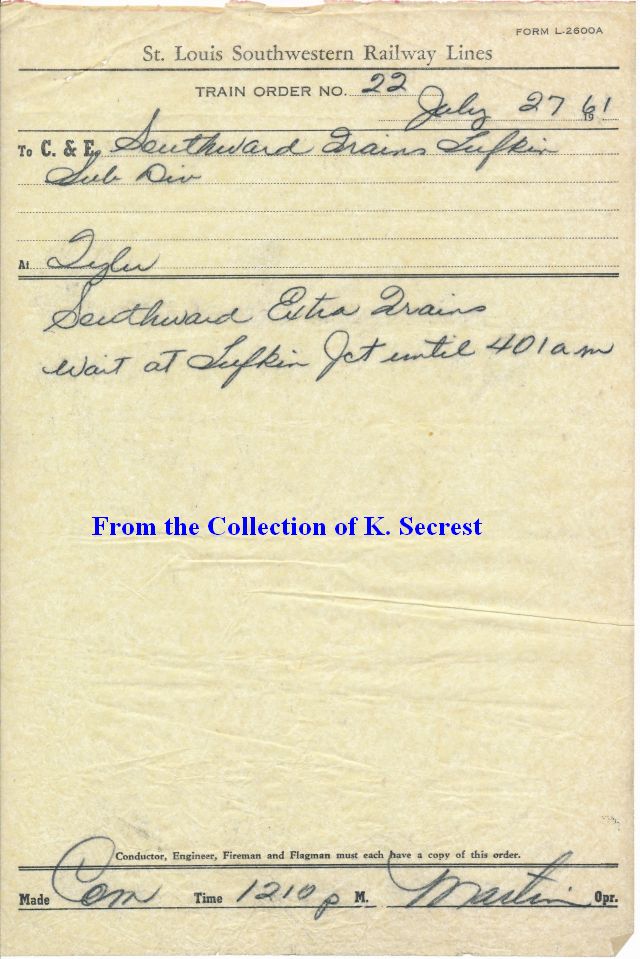 FORM L-2600A
St. Louis Southwestern Railway Lines
TRAIN ORDER NO. 22
July 27 1961
To C. & E. Southward Trains Lufkin
Sub Div
At Tyler
Southward Extra Trains
wait at Lufkin Jct until 401 am
From the Collection of K. Secrest
Conductor, Engineer, Fireman and Flagman must each have a copy of this order.
Made Com Time 1210 p M. Martin Opr.